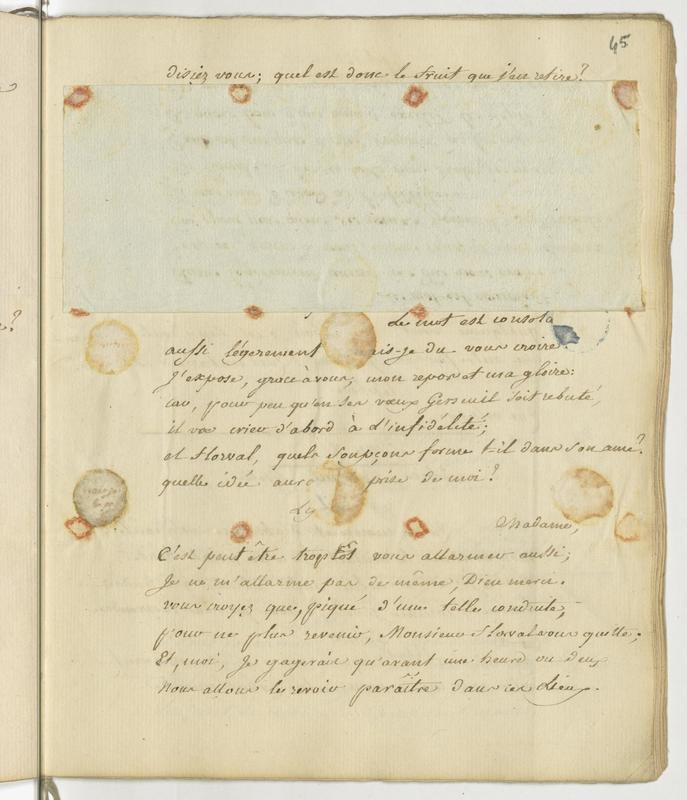 45
disiez vous; quel est donc le fruit que j'en retire?
Le mot est consola
aussi légerement ais-je du vous croire
J'expose, grace à vous, mon repos et ma gloire:
car, pour peu qu'en ses vœux Gerseuil soit rebuté,
il va crier d'abord à l'infidélité;
et Florval, quels soupçons forme t-il dans son ame?
quelle idée aura prise de moi?
Ly
Madame,
C'est peut être trop tôt vous allarmer aussi;
Je ne m'allarme pas de même, Dieu merci.
vous croyez que, piqué d'une telle conduite,
pour ne plus revenir, Monsieur Florval vous quitte;
Et, moi, Je gagerais qu'avant une heure ou deux
nous allons le revoir paraître dans ces Lieux.